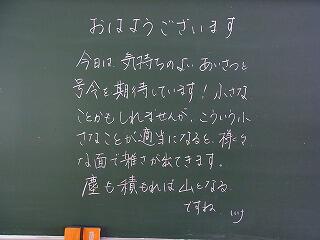 おはようございます
今日は、気持ちのよい あいさつと
号令を期待しています！小さな
ことかもしれませんが、こういう小
さなことが適当になると、様々
な面で雑さが出てきます。
塵も積もれば山となる
ですね